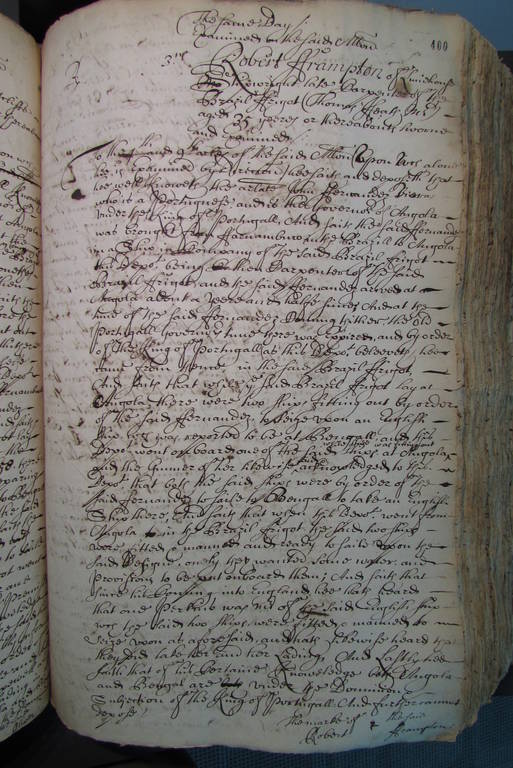 The same Day
Examined on the said Allon
400
3us
Robert Frampton of
late Carpenter of the
Brazil ffrigot (Thomas Mr)
aged 35 yeeres or thereabouts sworne
and Examined
To the of the said Allon Upon wch alone
hee is Examined this saith and deposeth that
he well knoweth the arlate John Fernandez Viera
who is a Portuguese and is the Governor of Angola
under the King of Portugall, And saith the said ffernandez
was brought from ffarnambuco in the Brazill to Angola
in Company of the said Brazil ffrigot
this Depot being then Carpenter of the said
Brazil ffrigot and the said ffernandez arived at
Angola about a yeere and halfe since And at the
time of the said ffernandez Coming thither the old
Portugall Governors time there was expired, and by order
of the King of Portugall as this Depot beleeveth hee
came from thence in the said Brazil ffrigot,
And saith that whilst the said Brazil ffrigot lay at
Angola there were two ships fitting out by order
of the said ffernandez to seize upon an English
ship wch was reported to be at Bengall, and this
Depot went onboard one of the said ships at Angola
and the Gunner of her likewise acknowledged to the
Depot that both the said ships were by order of the
said ffernandez to saile to Bengall to take an English
Ship there, And saith that when this Depot went from
Angola in the Brazil ffrigot the said two ships
were fitted manned and ready to saile upon the
said designe, onely they wanted some water and
Provision to be put onboard them; And saith that
since his Coming into England hee hath heard
that one Perkins was Mr of the said English ship
wch the said two ships were fitted & manned to
seize upon as aforesaid, and hath likewise heard that
they did take her and her Lading And Lastly hee
saith that of his Certaine knowledge both Angola
and Bengal are under the Dominion &
Subjection of the King of Portugall And further cannot
depose
The marke of the said
Robert Frampton